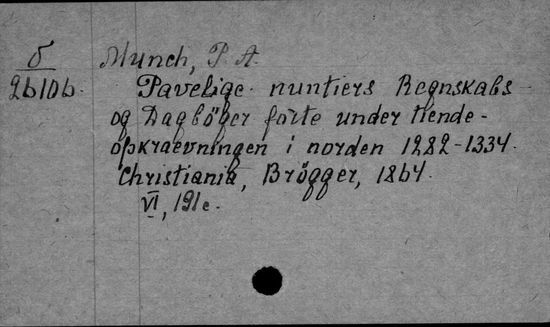 б
26106.
Munch, P. A.
Pavelige nuntiers Regnskabs-
og Dagböger førte under tiende-
opkraevningen i norden 1282-1334.
Christiania, Brögger, 1864.
VI, 191c.